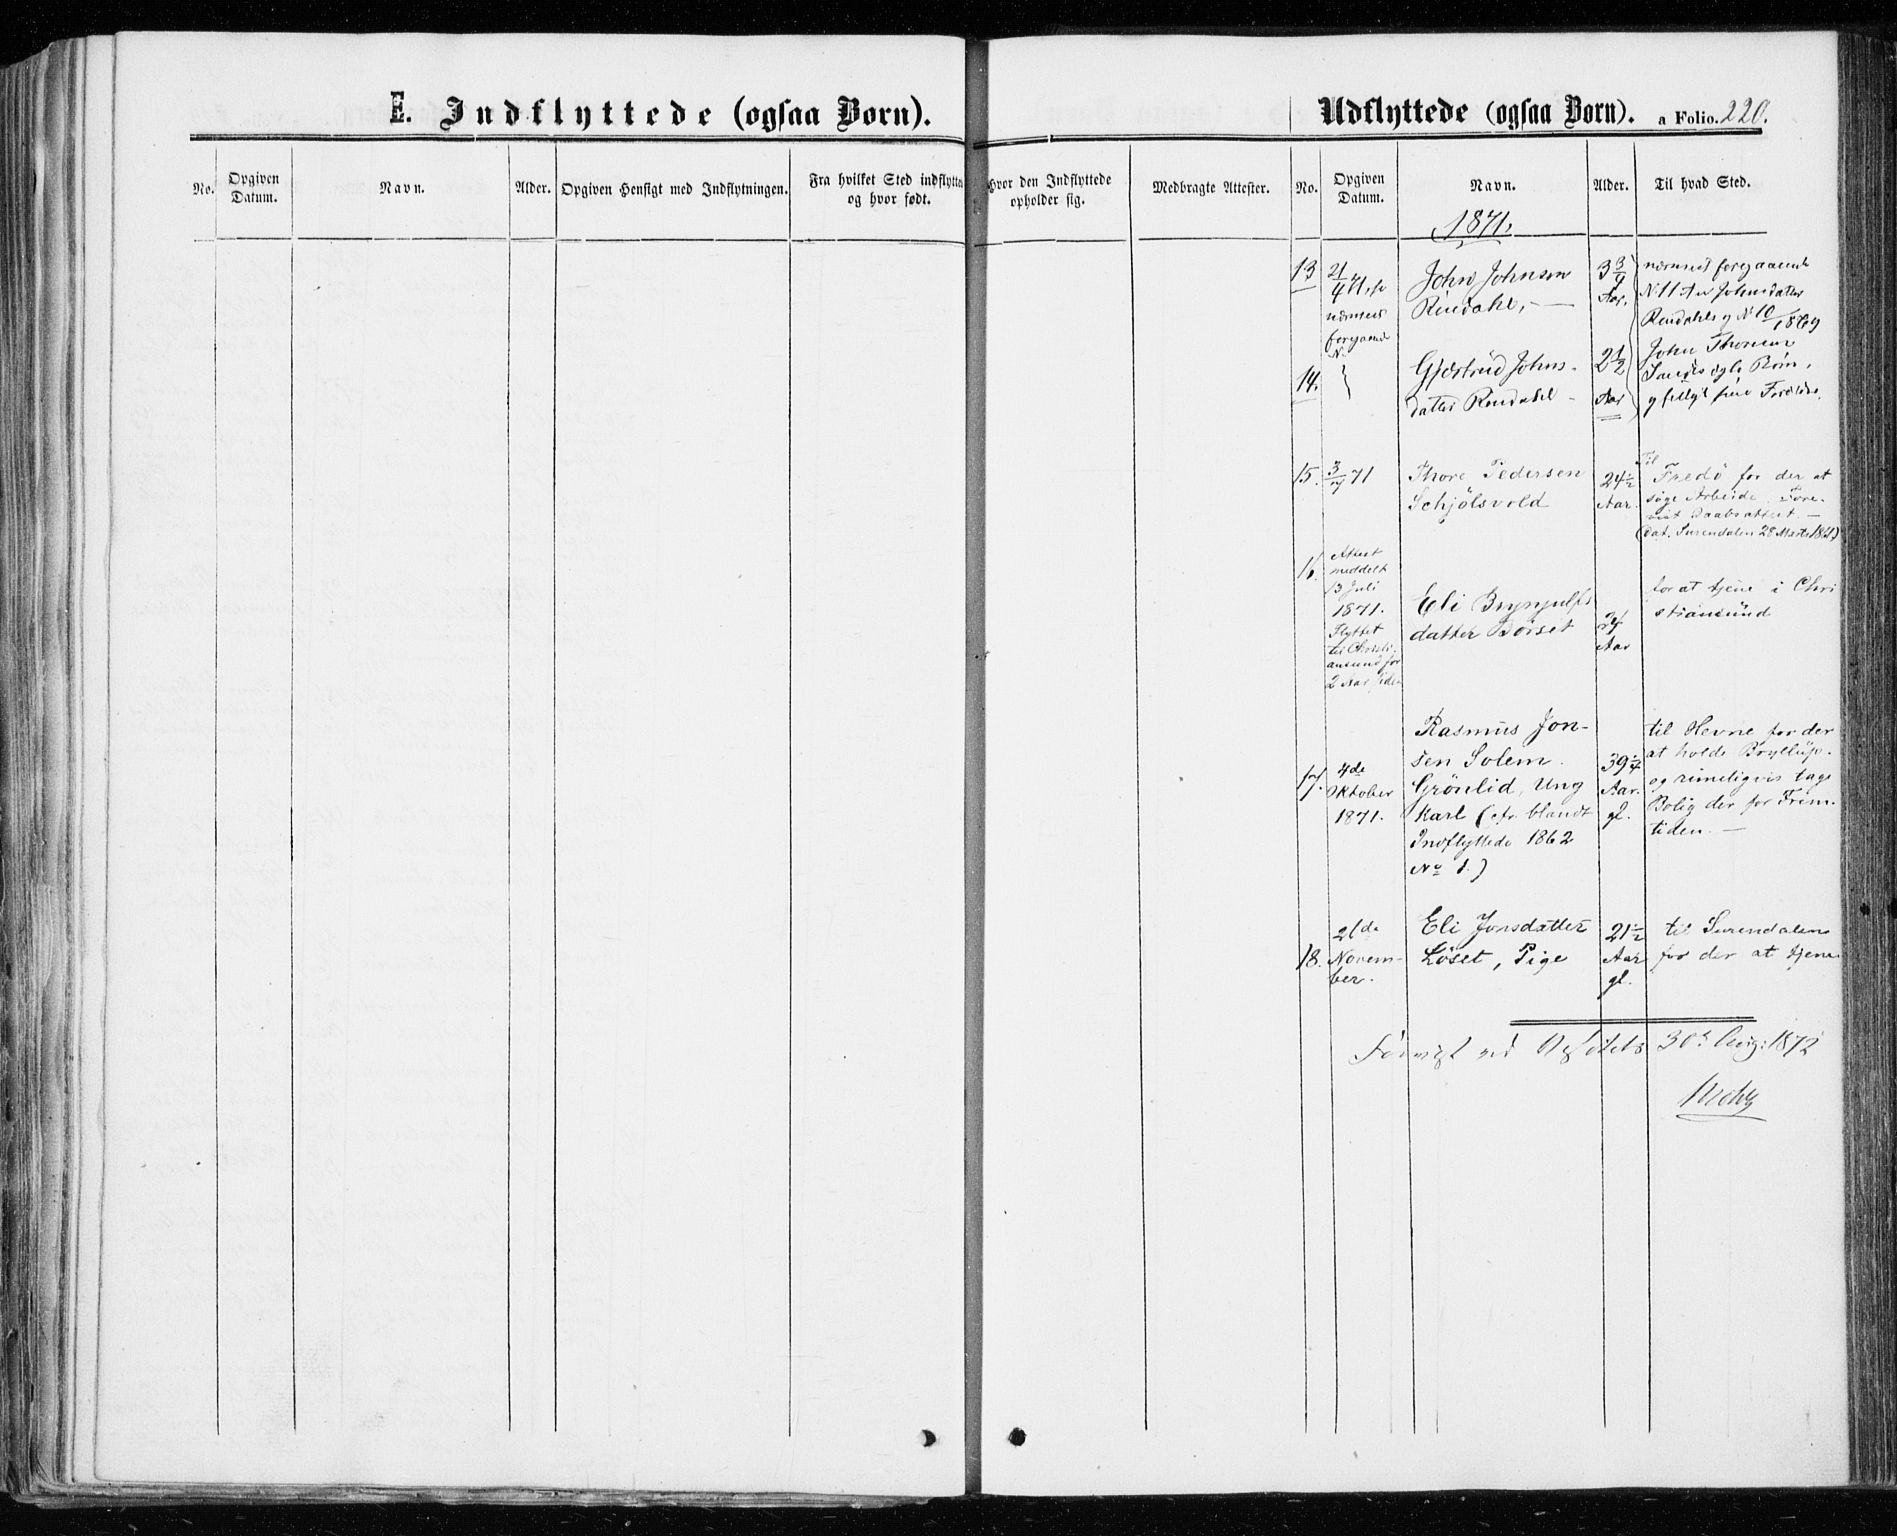 E. Indflyttede (ogsaa Børn).
Udflyttede (ogsaa Børn). a Folio. 220.
No. Opgiven Datum. Navn. Alder. Opgiven Hensigt med Indflytningen. Fra hvilket Sted indflyttet og hvor født. Hvor den Indflyttede opholder sig. Medbragte Attester. No. Opgiven Datum. Navn. Alder. Til hvad Sted.
1871.
13
21/4 71, se
nærmest
foregaaende
N.
John Johnsen
Rindahl, —
3 8/9
Aar.
nærmest foregaaende
N. 11
Johnsdatter
Rindahls N 10/1869
14.
Gjertrud Johns-
datter Rindahl -
2 1/2
Aar
John
15.
3/7 71
Thore Pedersen
Schjölsvold
24 1/2
Aar.
Til
Fredö for der at
söge Arbeide. Fore-
vist Daabsattest. —
(dat. Surendalen 28 Marts 1861)
16.
Attest
meddelt
13 Juli
1871.
Flyttet
til Christi-
ansund for
2 Aar siden
Eli Brynjulfs
datter Börset
24
Aar
for at tjene i Chri
stiansund
17.
4de
Oktober
1871.
Rasmus Jon-
sen Solem.
Grönlid, Ung
karl (cfr. blandt
Indflyttede 1862
No 1.)
39 3/4
Aar.
gl.
til Hevne for der
at holde Bryllup.
og rimeligvis tage
Bolig der for Frem-
tiden. —
18.
21de
Novem-
ber.
Eli Jonsdatter
Löset, Pige
21 1/2
Aar
gl.
til Surendalen
for der at tjene
30 Aug: 1872